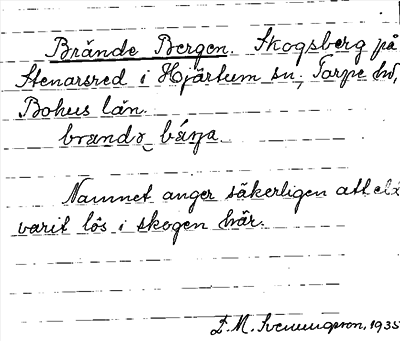 Brände Bergen. Skogsberg på
Stenarsred i Hjärtum sn, Torpe hd,
Bohus län.
brandə bárja.
Namnet anger säkerligen att eld
varit lös i skogen här.
D. M. Svenungsson, 1935